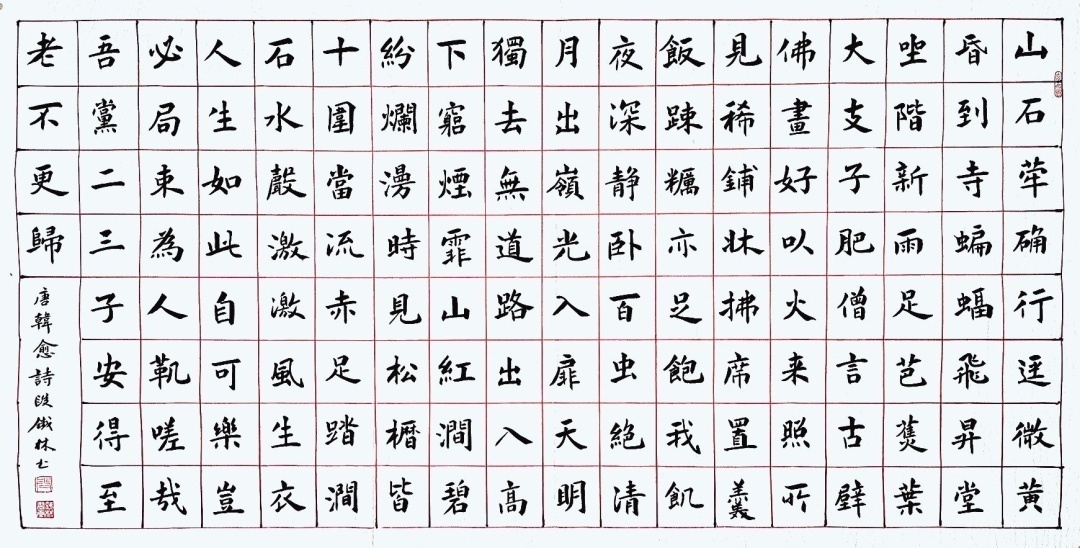 山石荦确行迳微黄
昏到寺蝙蝠飛昇堂
坐階新雨足芭蕉葉
大支子肥僧言古壁
佛畫好以火来照所
見稀鋪牀拂席置羹
飯踈糲亦足飽我飢
夜深静卧百虫絕清
月出嶺光入扉天明
獨去無道路出入高
下窮煙霏山紅澗碧
紛爛漫時見松櫪皆
十圍當流赤足踏澗
石水聲激激風生衣
人生如此自可樂豈
必局束為人鞿嗟哉
吾黨二三子安得至
老不更歸
唐韓愈詩段林